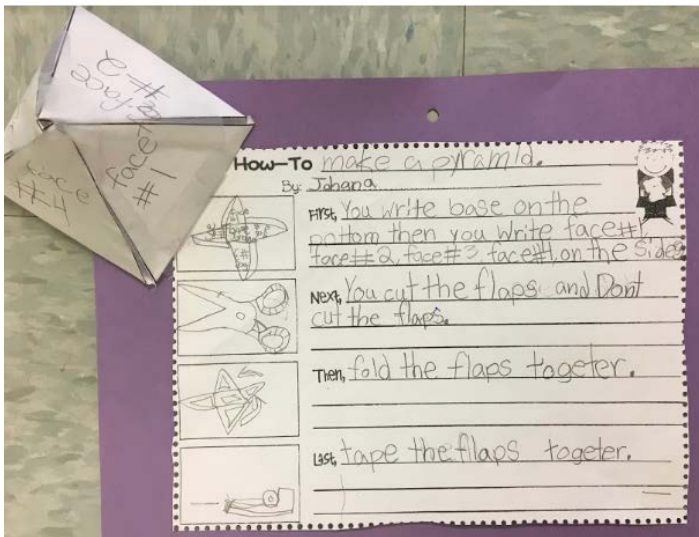 face
#2
face
#1
face
#4
How-To make a pyramid.
By: Johana
First, You write base on the
bottom then you write face#1,
face#2, face#3, face#1, on the sides
Next, You cut the flaps and Dont
cut the flaps.
Then, fold the flaps togeter.
Last, tape the fllaps togeter.